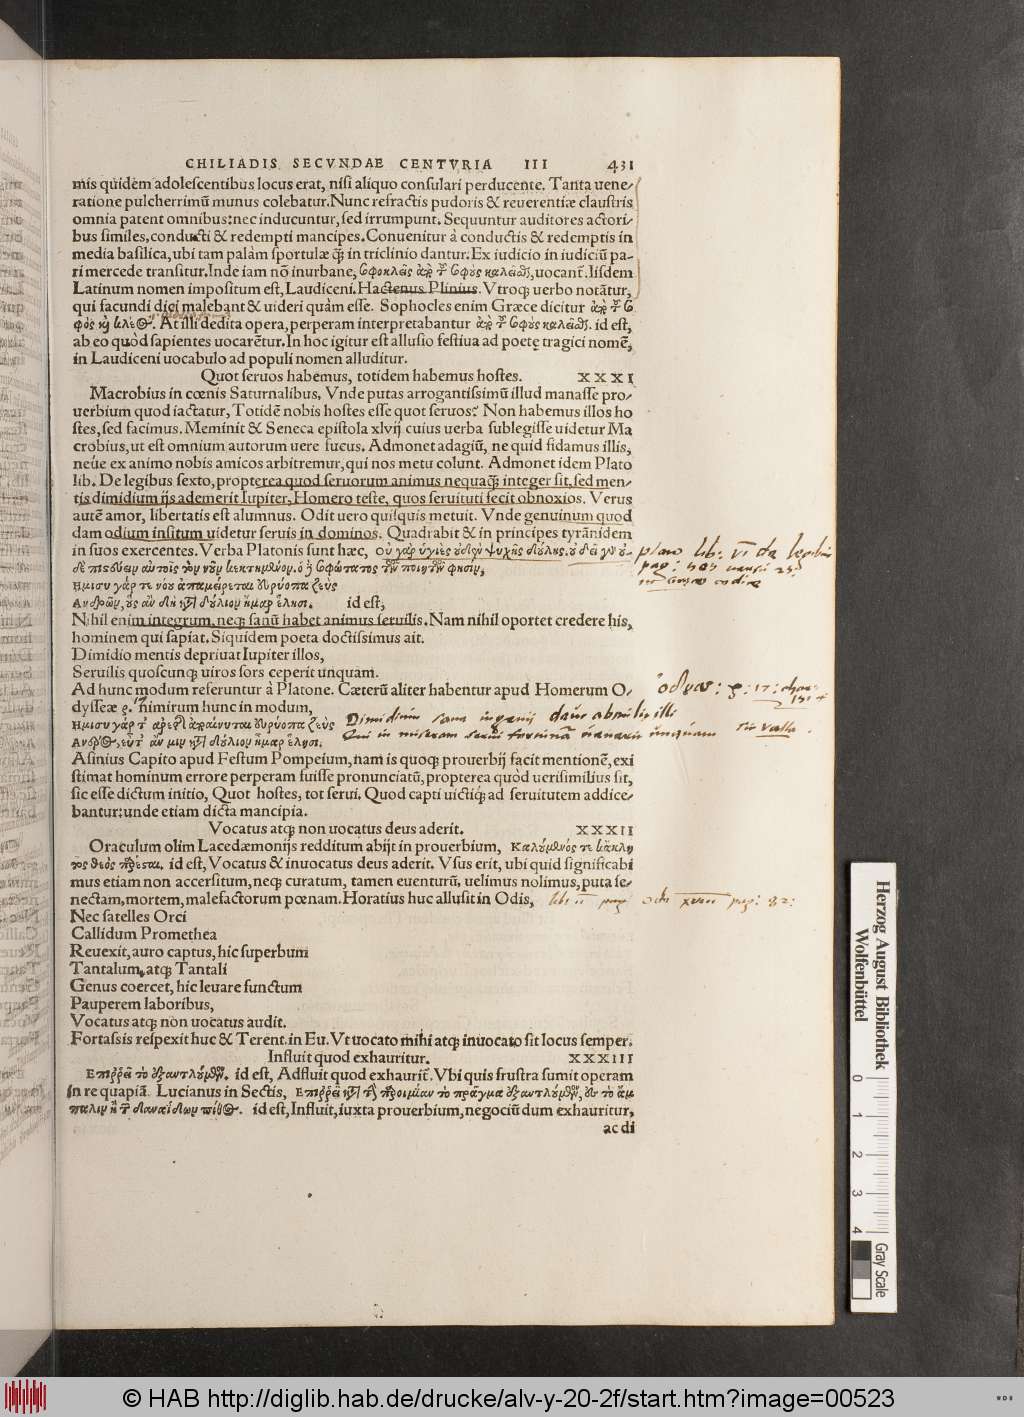 CHILIADIS SECVNDAE CENTVRIA III 431
mis quidem adolescentibus locus erat, nisi aliquo consulari perducente. Tanta uene-
ratione pulcherrimū munus colebatur. Nunc refractis pudoris & reuerentiæ claustris
omnia patent omnibus: nec inducuntur, sed irrumpunt. Sequuntur auditores actori-
bus similes, conducti & redempti mancipes. Conuenitur à conductis & redemptis in
media basilica, ubi tam palàm sportulæ q̃ in triclinio dantur. Ex iudicio in iudiciū pa-
ri mercede transitur. Inde iam nō inurbane, σοφοκλεῖς ἀπὸ τοῦ σοφῶς καλεῖσθαι, uocant̃. Iisdem
Latinum nomen impositum est, Laudiceni. Hactenus Plinius. Vtroq; uerbo notãtur,
qui facundi dici malebant & uideri quàm esse. Sophocles enim Græce dicitur ἀπὸ τοῦ σο
φὸς καὶ κλέος. At illi dedita opera, perperam interpretabantur ἀπὸ τοῦ σοφῶς καλεῖσθαι. id est,
ab eo quòd sapientes uocarētur. In hoc igitur est allusio festiua ad poetę tragici nomē,
in Laudiceni uocabulo ad populi nomen alluditur.
Quot seruos habemus, totidem habemus hostes. XXXI
Macrobius in cœnis Saturnalibus, Vnde putas arrogantissimū illud manasse pro-
uerbium quod iactatur, Totidē nobis hostes esse quot seruos? Non habemus illos ho
stes, sed facimus. Meminit & Seneca epistola xlvij. cuius uerba sublegisse uidetur Ma
crobius, ut est omnium autorum uere fucus. Admonet adagiū, ne quid fidamus illis,
neúe ex animo nobis amicos arbitremur, qui nos metu colunt. Admonet idem Plato
lib. De legibus sexto, propterea quod seruorum animus nequaq̃ integer sit, sed men-
tis dimidium ijs ademerit Iupiter, Homero teste, quos seruituti fecit obnoxios. Verus
autē amor, libertatis est alumnus. Odit uero quisquis metuit. Vnde genuinum quod
dam odium insitum uidetur seruis in dominos. Quadrabit & in principes tyrānidem
in suos exercentes. Verba Platonis sunt hæc, οὐ γὰρ ὑγιὲς οὐδὲν ψυχῆς δούλης. οὐδεῖ γὰρ οὐ-
δὲ πιστεύειν αὐτοῖς τὸν νοῦν κεκτημένον. ὁ δὲ σοφώτατος τῶν ποιητῶν φησιν,
Ημισυ γάρ τε νόου ἀπαμείρεται εὐρύοπα ζεὺς
Ανδρῶν, οὓς ἂν δὴ κατὰ δούλιον ἦμαρ ἕλησι. id est,
Nihil enim integrum, neq; sanū habet animus seruilis. Nam nihil oportet credere his,
hominem qui sapiat. Siquidem poeta doctissimus ait.
Dimidio mentis depriuat Iupiter illos,
Seruilis quoscunq; uiros sors ceperit unquam.
Ad hunc modum referuntur à Platone. Cæterū aliter habentur apud Homerum O-
dysseæ ρ. nimirum hunc in modum,
Ημισυ γάρ τ᾽ ἀρετῆς ἀποαίνυται εὐρύοπα ζεὺς
Ανέρος, εὖτ᾽ ἄν μιν κατὰ δούλιον ἦμαρ ἕλησι.
Asinius Capito apud Festum Pompeium, nam is quoq; prouerbij facit mentionē, exi
stimat hominum errore perperam fuisse pronunciatū, propterea quòd uerisimilius sit,
sic esse dictum initio, Quot hostes, tot serui. Quod capti uictiq́; ad seruitutem addice-
bantur: unde etiam dicta mancipia.
Vocatus atq; non uocatus deus aderit. XXXII
Oraculum olim Lacedæmonijs redditum abijt in prouerbium, Καλούμενός τε κἄκλη
τος θεὸς παρέσται. id est, Vocatus & inuocatus deus aderit. Vsus erit, ubi quid significabi
mus etiam non accersitum, neq; curatum, tamen euenturū, uelimus nolimus, puta se-
nectam, mortem, malefactorum pœnam. Horatius huc allusit in Odis,
Nec satelles Orci
Callidum Promethea
Reuexit, auro captus, hic superbum
Tantalum, atq; Tantali
Genus coercet, hic leuare functum
Pauperem laboribus,
Vocatus atq; non uocatus audit.
Fortassis respexit huc & Terent. in Eu. Vt uocato mihi atq; inuocato sit locus semper.
Influit quod exhauritur. XXXIII
Επιρρεῖ τὸ ἐξαντλούμενον. id est, Adfluit quod exhaurit̃. Vbi quis frustra sumit operam
in re quapiā. Lucianus in Sectis, Επιρρεῖ κατὰ τὴν παροιμίαν τὸ πρᾶγμα ἐξαντλούμενον, ἐς τὸ ἔμ
παλιν ἢ τῶν δαναΐδων πίθος. id est, Influit, iuxta prouerbium, negociū dum exhauritur,
ac di
plato lib: VI de legibus
Dimidium
Qui in miseram
Herzog August Bibliothek
Wolfenbüttel
0 1 2 3 4
Gray Scale
© HAB http://diglib.hab.de/drucke/alv-y-20-2f/start.htm?image=00523